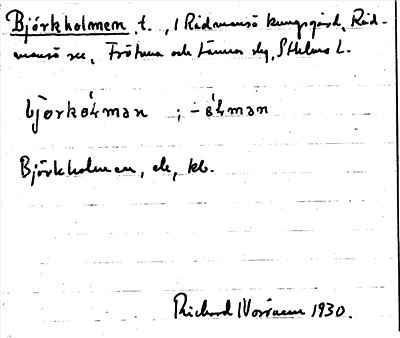 Björkholmen, t., / Rådmansö kungsgård, Råd-
mansö sn, Frötuna och Länna slg, Sthlms l.
björkɵ́lman ; -ɵ́lmən
Björkholmen, ek, kb.
Richard 1930.